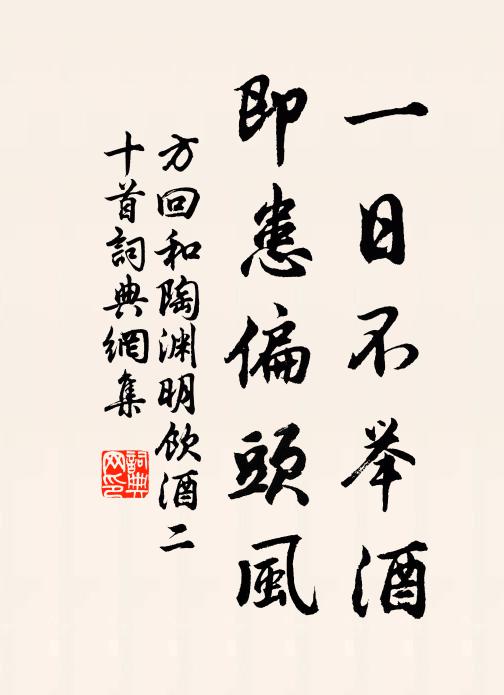 一日不举酒
即患偏頭風
方回和陶渊明飲酒二
十首詞典網集
詞典
网印